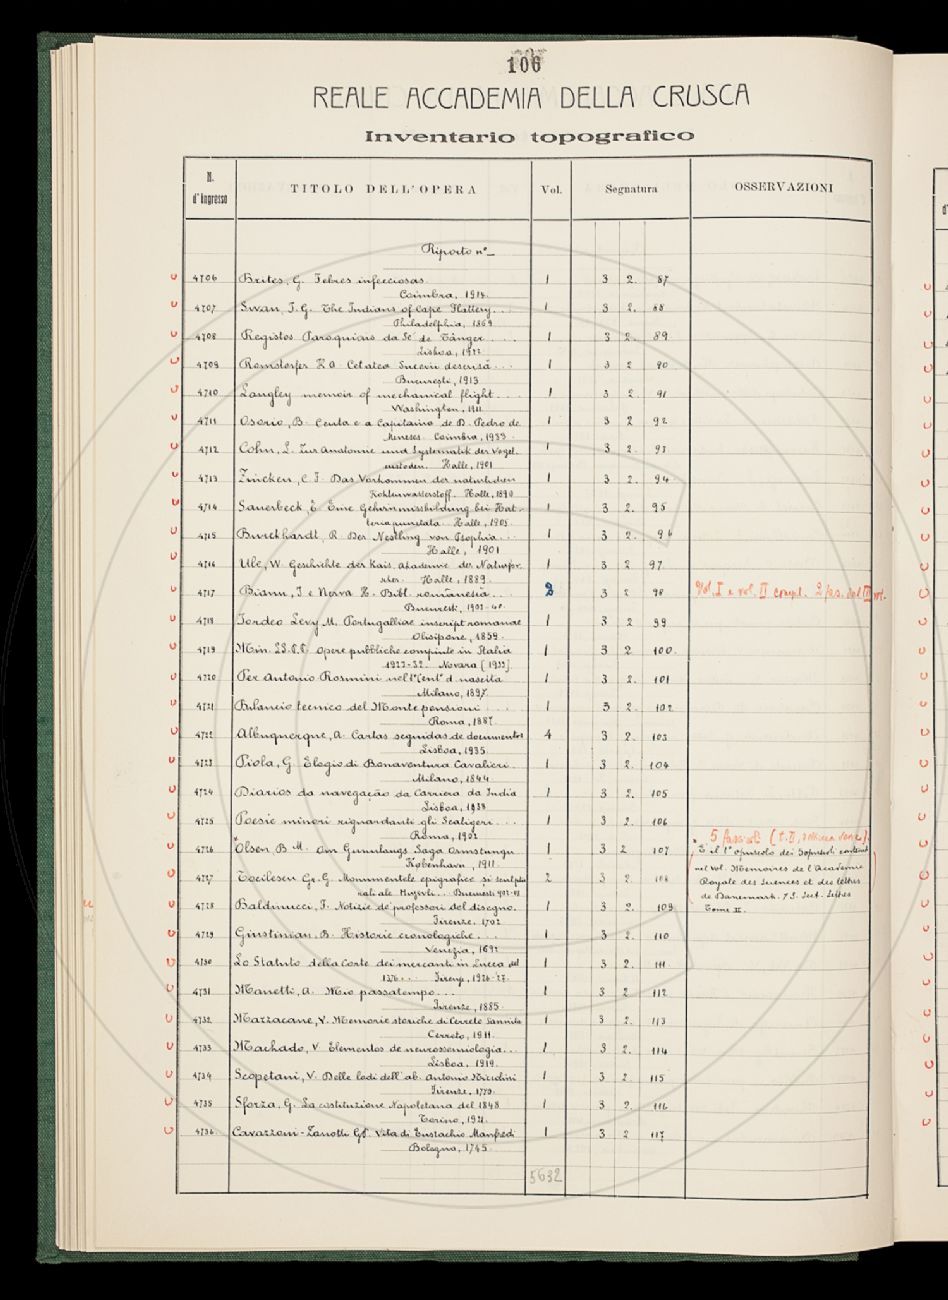 106
REALE ACCADEMIA DELLA CRUSCA
Inventario topografico
N. d'Ingresso TITOLO DELL'OPERA Vol. Segnatura OSSERVAZIONI
Riporto n°
4706 Brites, G. Febres infecciosas. 1 3 2. 87
Coimbra, 1914.
4707 Swan, J. G. The Indians of Cape Flattery... 1 3 2. 88
Philadelphia, 1869
4708 Registos Paroquiais da Sé de Tânger.... 1 3 2. 89
Lisboa, 1922
4709 Romstorfer K A Cetatea Sucevii descrisă... 1 3 2 90
Bucureşti, 1913
4710 Langley memoir of mechanical flight.... 1 3 2. 91
Washington, 1911.
4711 Osorio, B. Ceuta e a Capitania de D. Pedro de 1 3 2 92
Meneses. Coimbra, 1933.
4712 Cohn, L. Zur Anatomie und Systematik der Vogel- 1 3 2. 93
cestoden. Halle, 1901
4713 Zincken, C. F. Das Vorkommen der naturlichen 1 3 2. 94
Kohlenwasserstoff. Halle, 1890
4714 Sauerbeck, E Eine Gehirnmissbildung bei Hat- 1 3 2. 95
teria punctata. Halle, 1905.
4715 Burckhardt, R. Der Nestling von Psophia... 1 3 2. 96
Halle, 1901
4716 Ule, W. Geschichte der Kais. Akademie der Naturfor- 1 3 2 97
scher. Halle, 1889.
4717 Bianu, I e Nerva H. Bibl. românească... 3 2 98 Vol. I e vol. II compl. 2 fas. del III vol.
Bucuresti, 1903-40.
4718 Jordao Levy M. Portugalliae inscript romanae 1 3 2 99
Olisipone, 1859.
4719 Min. LL.P.P. Opere pubbliche compiute in Italia 1 3 2 100.
1923-32. Novara [1933].
4720 Per Antonio Rosmini nel 1° Cent° d nascita 1 3 2. 101
Milano, 1897.
4721 Bilancio tecnico del Monte pensioni.... 1 3 2. 102
Roma, 1887.
4722 Albuquerque, A. Cartas seguidas de documentos 4 3 2. 103
Lisboa, 1935.
4723 Piola, G. Elogio di Bonaventura Cavalieri. 1 3 2. 104
Milano, 1844.
4724 Diarios da navegação da Carriera da India 1 3 2. 105
Lisboa, 1938
4725 Poesie minori riguardanti gli Scaligeri... 1 3 2. 106
Roma, 1902
4726 Olsen, B M. Om Gunnlaugs Saga Ormstungu. 1 3 2 107
København, 1911.
5 fascicoli
È il 1° opuscolo dei
nel vol. Memoires de l'Académie
Royale des Sciences et des lettres
de Danemark. 7 S. Sect. Lettres
Tome II.
4727 Tocilescu Gr. G. Monumentele epigrafice și sculptu 2 3 2. 108
rali ale Bucuresti 902-08
4728 Baldinucci, F. Notizie de' professori del disegno. 1 3 2. 109
Firenze. 1702
4729 Giustinian. B. Historie cronologiche... 1 3 2. 110
Venezia, 1692
4730 Lo Statuto della Corte dei mercanti in Lucca del 1 3 2. 111
1376... Firenze, 1926-27.
4731 Manetti, A. Mio passatempo... 1 3 2 112
Firenze, 1885.
4732 Mazzacane, V. Memorie storiche di Cerreto Sannita 1 3 2. 113
Cerreto, 1911.
4733 Machado, V Elementos de neurossemiologia... 1 3 2. 114
Lisboa. 1919.
4734 Scopetani, V. Delle lodi dell'ab. Antonio Niccolini 1 3 2 115
Firenze, 1770.
4735 Sforza, G. La costituzione Napoletana del 1848 1 3 2. 116
Torino, 1921.
4736 Cavazzoni-Zanotti GP. Vita di Eustachio Manfredi 1 3 2 117
Bologna, 1745.
5632